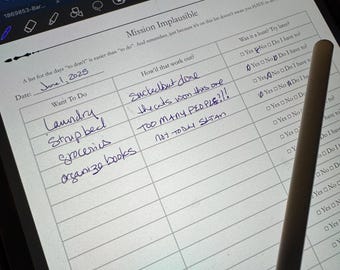 1869853-Bar...
Mission Implausible
A list for the days "to don't" is easier than "to do". And remember, just because it's on this list doesn't mean you
Date: June 1, 2025
Want To Do How'd that work out? Was it a bust? Try later?
Laundry sucked but done Yes No Do I have to?
Strip bed the cats won this one Yes No Do I have to?
groceries TOO MANY PEOPLE?!! Yes No Do I have to?
organize books NOT TODAY SATAN Yes No Do I have to?
Yes No Do I have to?
Yes No Do I have to?
Yes No Do I have to?
Yes No Do I have
Yes No Do I
Yes No Do
Yes No